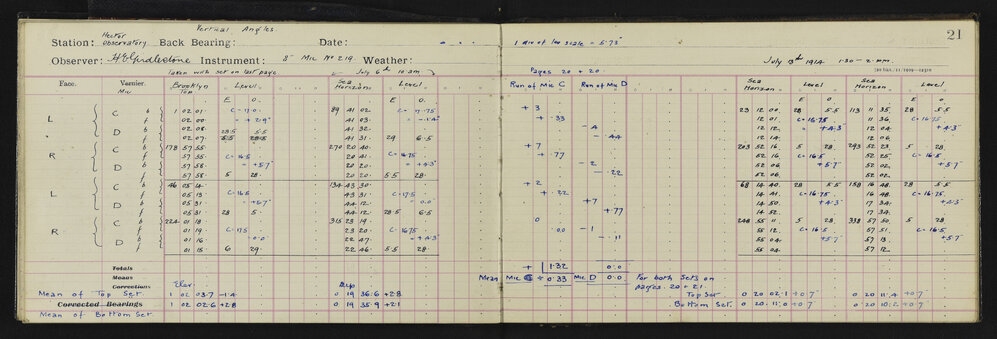 Vertical Angles.
Station: Hector Observatory Back Bearing: Date:
Observer: H E Girdlestone Instrument: 8" Mic No 219. Weather:
Taken with set on last page July 6th 10 am
Face. Vernier. Mic Brooklyn Top Level. Sea Horizon. Level.
E O E O
L C b 1 02 01 C = 17.0 89 41 02 C = 17.75
f 02 00 + 2.9" 41 03 - 1.4"
D b 02 08 28.5 5.5 41 32
f 02 07 41 31 29 6.5
R C b 178 57 55 270 20 40
f 57 55 C = 16.5 20 41 C = 16.75
D b 57 58 + 5.7" 20 20 + 4.3"
f 57 58 5 28 20 20 5.5 28
L C b 46 05 14 134 43 30
f 05 13 C = 16.5 43 31 C = 17.5
D b 05 31 + 5.7" 44 12 0.0
f 05 31 28 5 44 12 28.5 6.5
R C b 224 01 18 315 23 19
f 01 19 C = 17.5 23 20 C = 16.75
D b 01 16 0.0 22 47 + 4.3"
f 01 15 6 29 22 46 5.5 28
Totals
Means
Corrections Elev. Dep
Mean of Top Set. 1 02 03.7 -1.4 0 19 36.6 +2.8
Corrected Bearings 1 02 02.6 +2.8 0 19 35.9 +2.1
Mean of Bottom Set.
21
1 div of lev scale = 5.73"
July 13th 1924 1.30 - 2. P.M.
Pages 20 + 20
Run of Mic C Run of Mic D Sea Horizon Level Sea Horizon Level
E O E O
+ 3 23 12 00 28 5.5 113 11 35 28 5.5
+ .33 12 01 C = 16.75 11 36 C = 16.75
- 4 12 12 + 4.3" 12 04 + 4.3"
- .44 12 14 12 06
+ 7 203 52 16 5 28 293 52 23 5 28
+ .77 52 16 C = 16.5 52 25 C = 16.5
- 2 52 06 + 5.7" 52 02 + 5.7"
- .22 52 06 52 02
+ 2 68 14 40 28 5.5 158 16 48 28 5.5
+ .22 14 41 C = 16.75 16 48 C = 16.75
+ 7 14 50 + 4.3" 17 34 + 4.3"
+ .77 14 52 17 34
0 248 55 11 5 28 338 57 50 5 28
.00 - 1 55 12 C = 16.5 57 51 C = 16.5
- .11 55 04 + 5.7" 57 13 + 5.7"
55 04 57 12
+ 1.32 0.0
Mean Mic C + 0.33 Mic D 0.0 For both sets on pages 20 + 21
Top Set 0 20 02.1 +0.7 0 20 11.4 +0.7
Bottom Set. 0 20 11.0 +0.7 0 20 10.2 +0.7